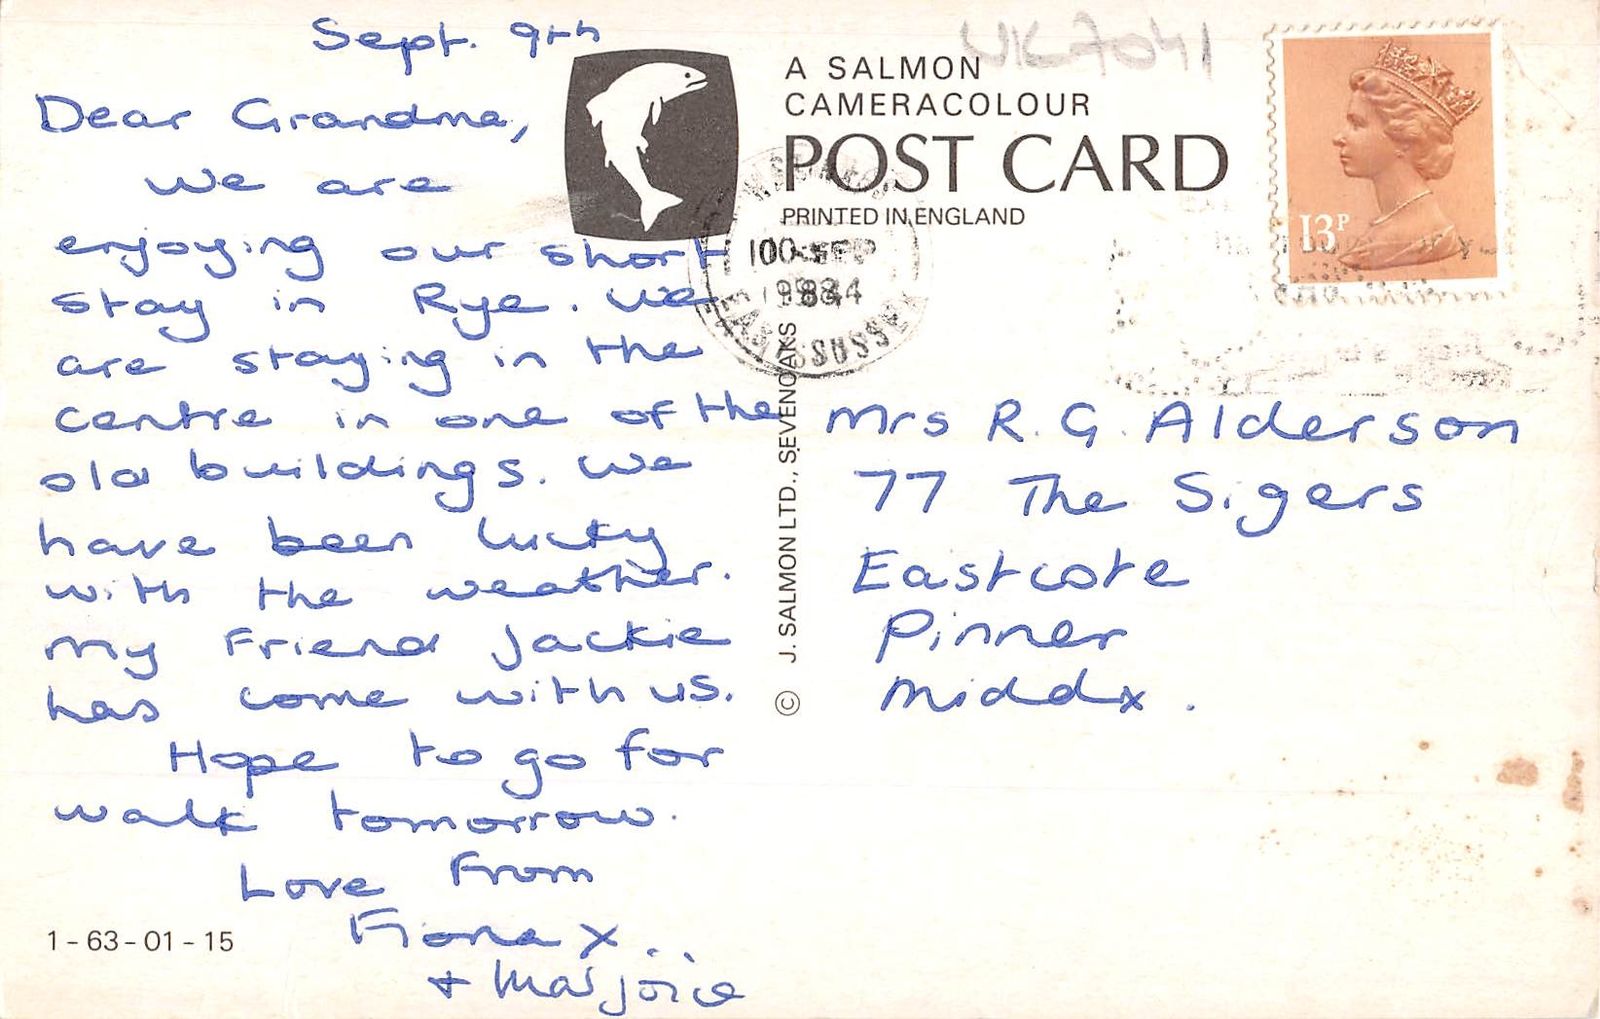 Sept. 9th
Dear Grandma,
We are
enjoying our short
stay in Rye. We
are staying in the
centre in one of the
old buildings. We
have been lucky
with the weather.
My Friend Jackie
has come with us.
Hope to go for
walk tomorrow.
Love From
Fiona x.
+ Marjorie
1-63-01-15
UK7041
A SALMON
CAMERACOLOUR
POST CARD
PRINTED IN ENGLAND
© J. SALMON LTD., SEVENOAKS
13P
SEP
1984
EAST SUSSEX
Mrs R. G. Alderson
77 The Sigers
Eastcote
Pinner
Middx.